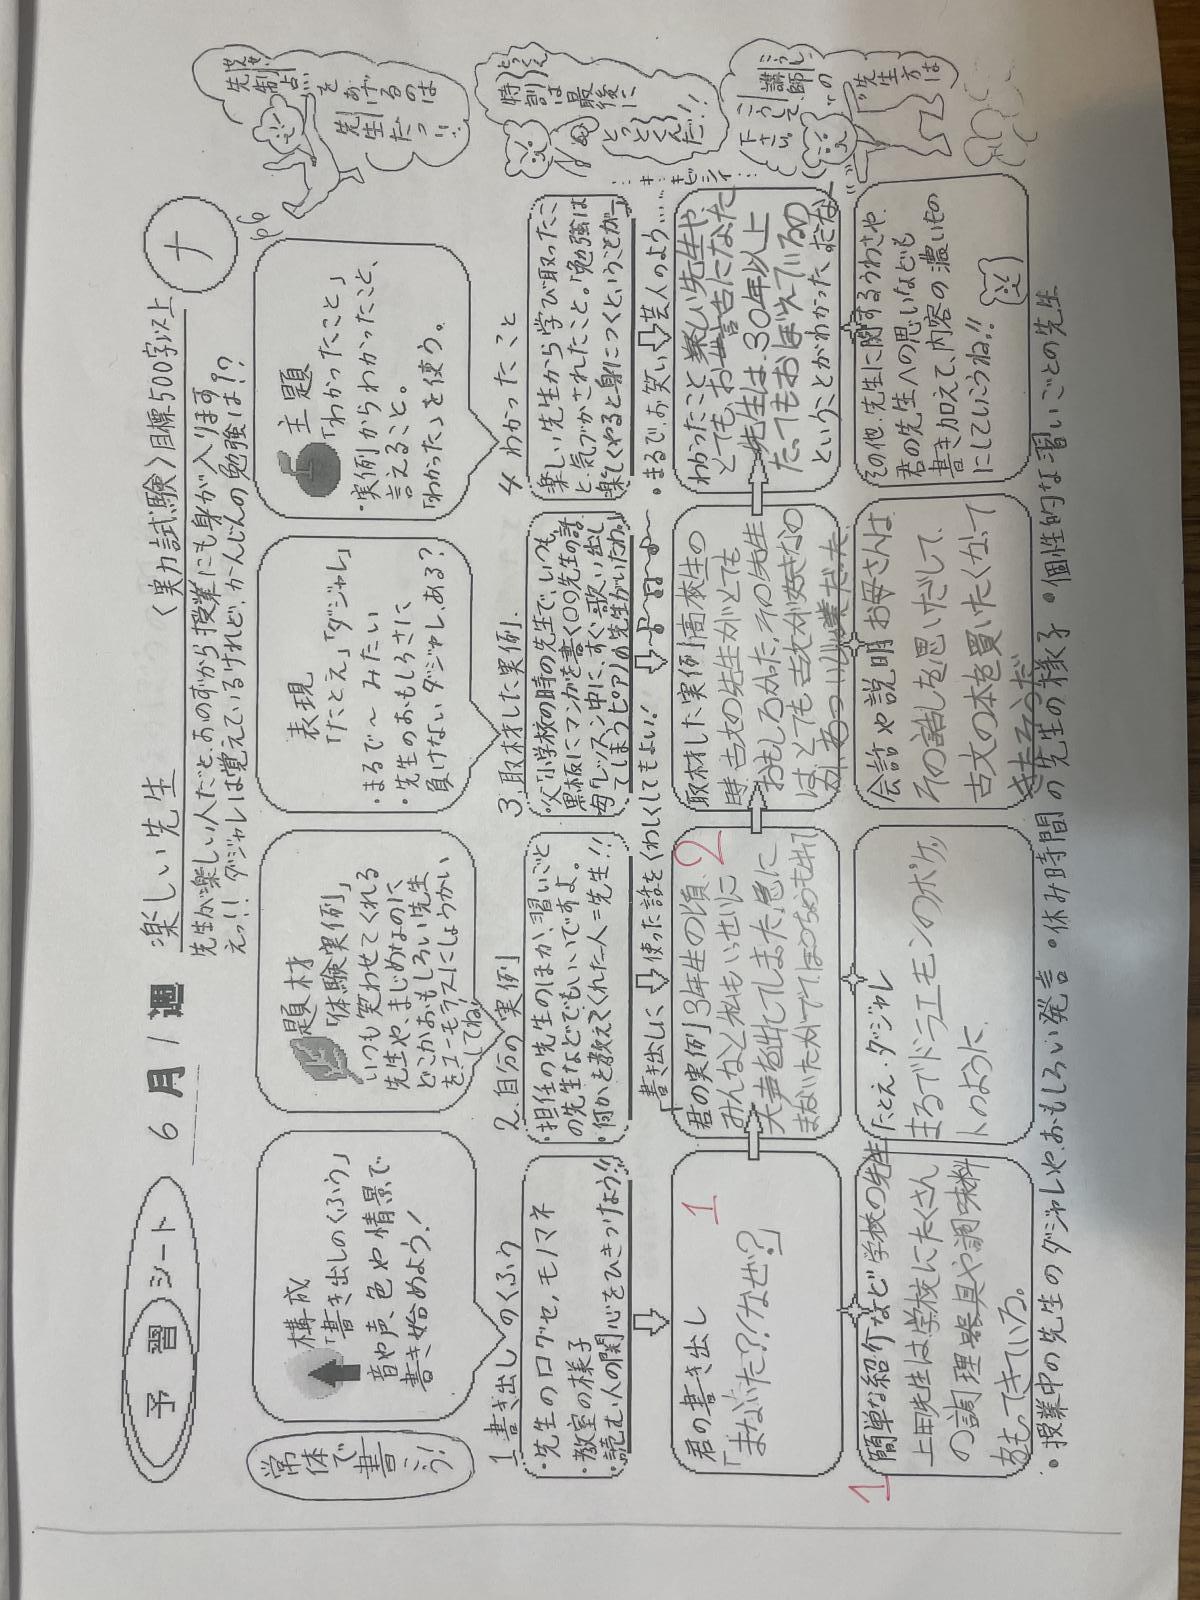 予習シート
6月1週
楽しい先生
〈実力試験〉目標500字以上
ナ
先生が楽しい人だと、おのずから授業にも身が入ります
えっ!! ダジャレは覚えているけれど、かんじんの勉強は!?
常体で書こう!
構成
「書き出しのくふう」
音や声、色や情景で
書き始めよう!
題材
「体験実例」
いつも笑わせてくれる
先生や、まじめなのに、
どこかおもしろい先生
をユーモラスにしょうかい
してね。
表現
「たとえ」「ダジャレ」
・まるで〜みたい
・先生のおもしろさに
負けないダジャレ、ある?
主題
「わかったこと」
・実例からわかったこと、
言えること。
「わかった」を使う。
先制点をあげるのは先生だっ!!
1 書き出しのくふう
・先生の口グセ、モノマネ
・教室の様子
・読む人の関心をひきつけよう!!
2.自分の実例
・担任の先生のほか、習いごと
の先生などでもいいですよ。
・何かを教えてくれた人=先生!!
3.取材した実例
・父「小学校の時の先生で、いつも
黒板にマンガを書く〇〇先生の話
・母「レッスン中に、すぐ歌い出し
てしまうピアノの先生がいたわ。」
4 わかったこと
楽しい先生から学び取ったこ
と、気づかされたこと。「勉強は
楽しくやると身につくということが」
特訓は最後にとっとくんだ!!
書き出しに
使った話をくわしくしてもよい!
・まるで、お笑い芸人のよう……
君の書き出し
1
「まなぶた?/なぜ?」
君の実例
3年生の頃、
2
みんなと私もいっせいに
大声を出してしまった。急に
取材した実例
高校生の
時、古文の先生がとても
おもしろかった。その先生
は、とても古文が好きなの
わかったこと
楽しい先生や
とても、お世話になった
先生は、30年以上
たってもおぼえているの
ということがわかった。
講師の先生方はこうして下さい。
1
簡単な紹介など
学校の先生
上田先生は学校にたくさん
の調理器具や調味料
をもってきている。
たとえ・ダジャレ
まるでドラエモンのポケッ
トのように、
会話や説明
お母さんは、
その話しを思いだして、
古文の本を買いたくなって
きたそうだ
その他、先生に関するうわさや、
君の先生への思いなども
書き加えて、内容の濃いもの
にしていこうね!!
・授業中の先生のダジャレや、おもしろい発言
・休み時間の先生の様子
・個性的な習いごとの先生